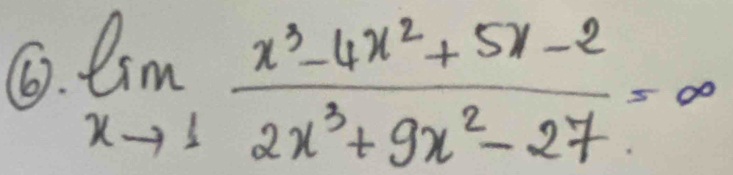 ⑥. lim x→1 (x³ - 4x² + 5x - 2) / (2x³ + 9x² - 27) = ∞